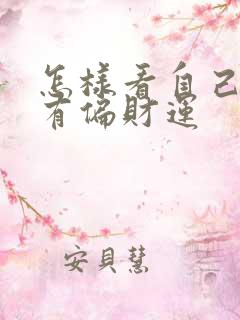 怎樣看自己
有偏財運
安貝慧